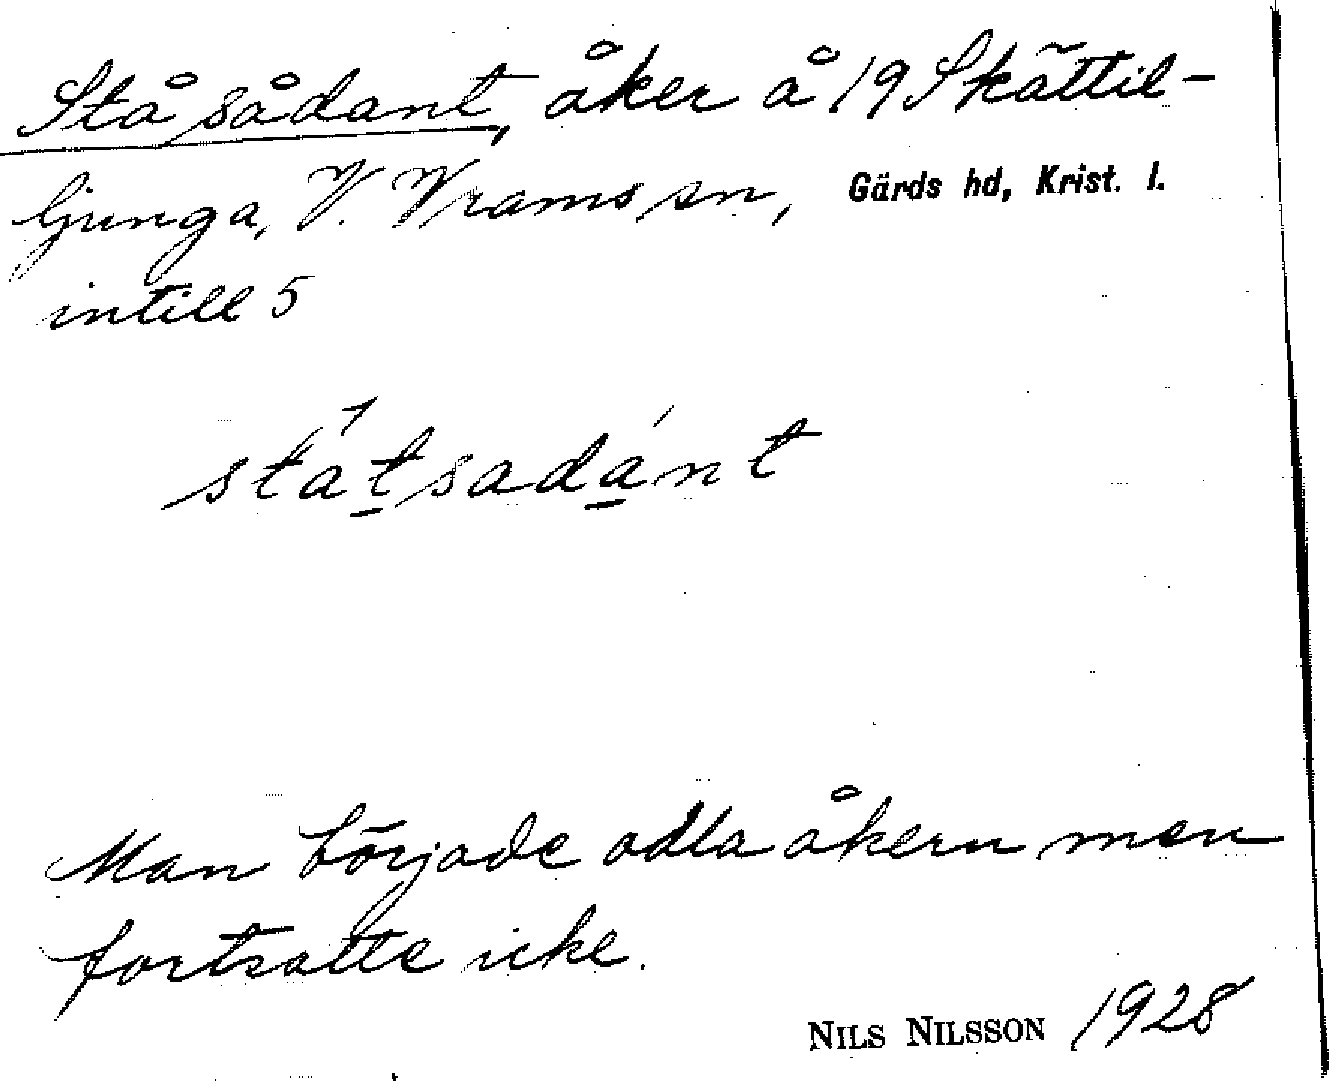 Stå sådant, åker å 19 Skättil-
ljunga, V. Vrams sn, Gärds hd, Krist. l.
intill 5
ståtsadant
Man började odla åkern men
fortsatte icke.
NILS NILSSON 1928